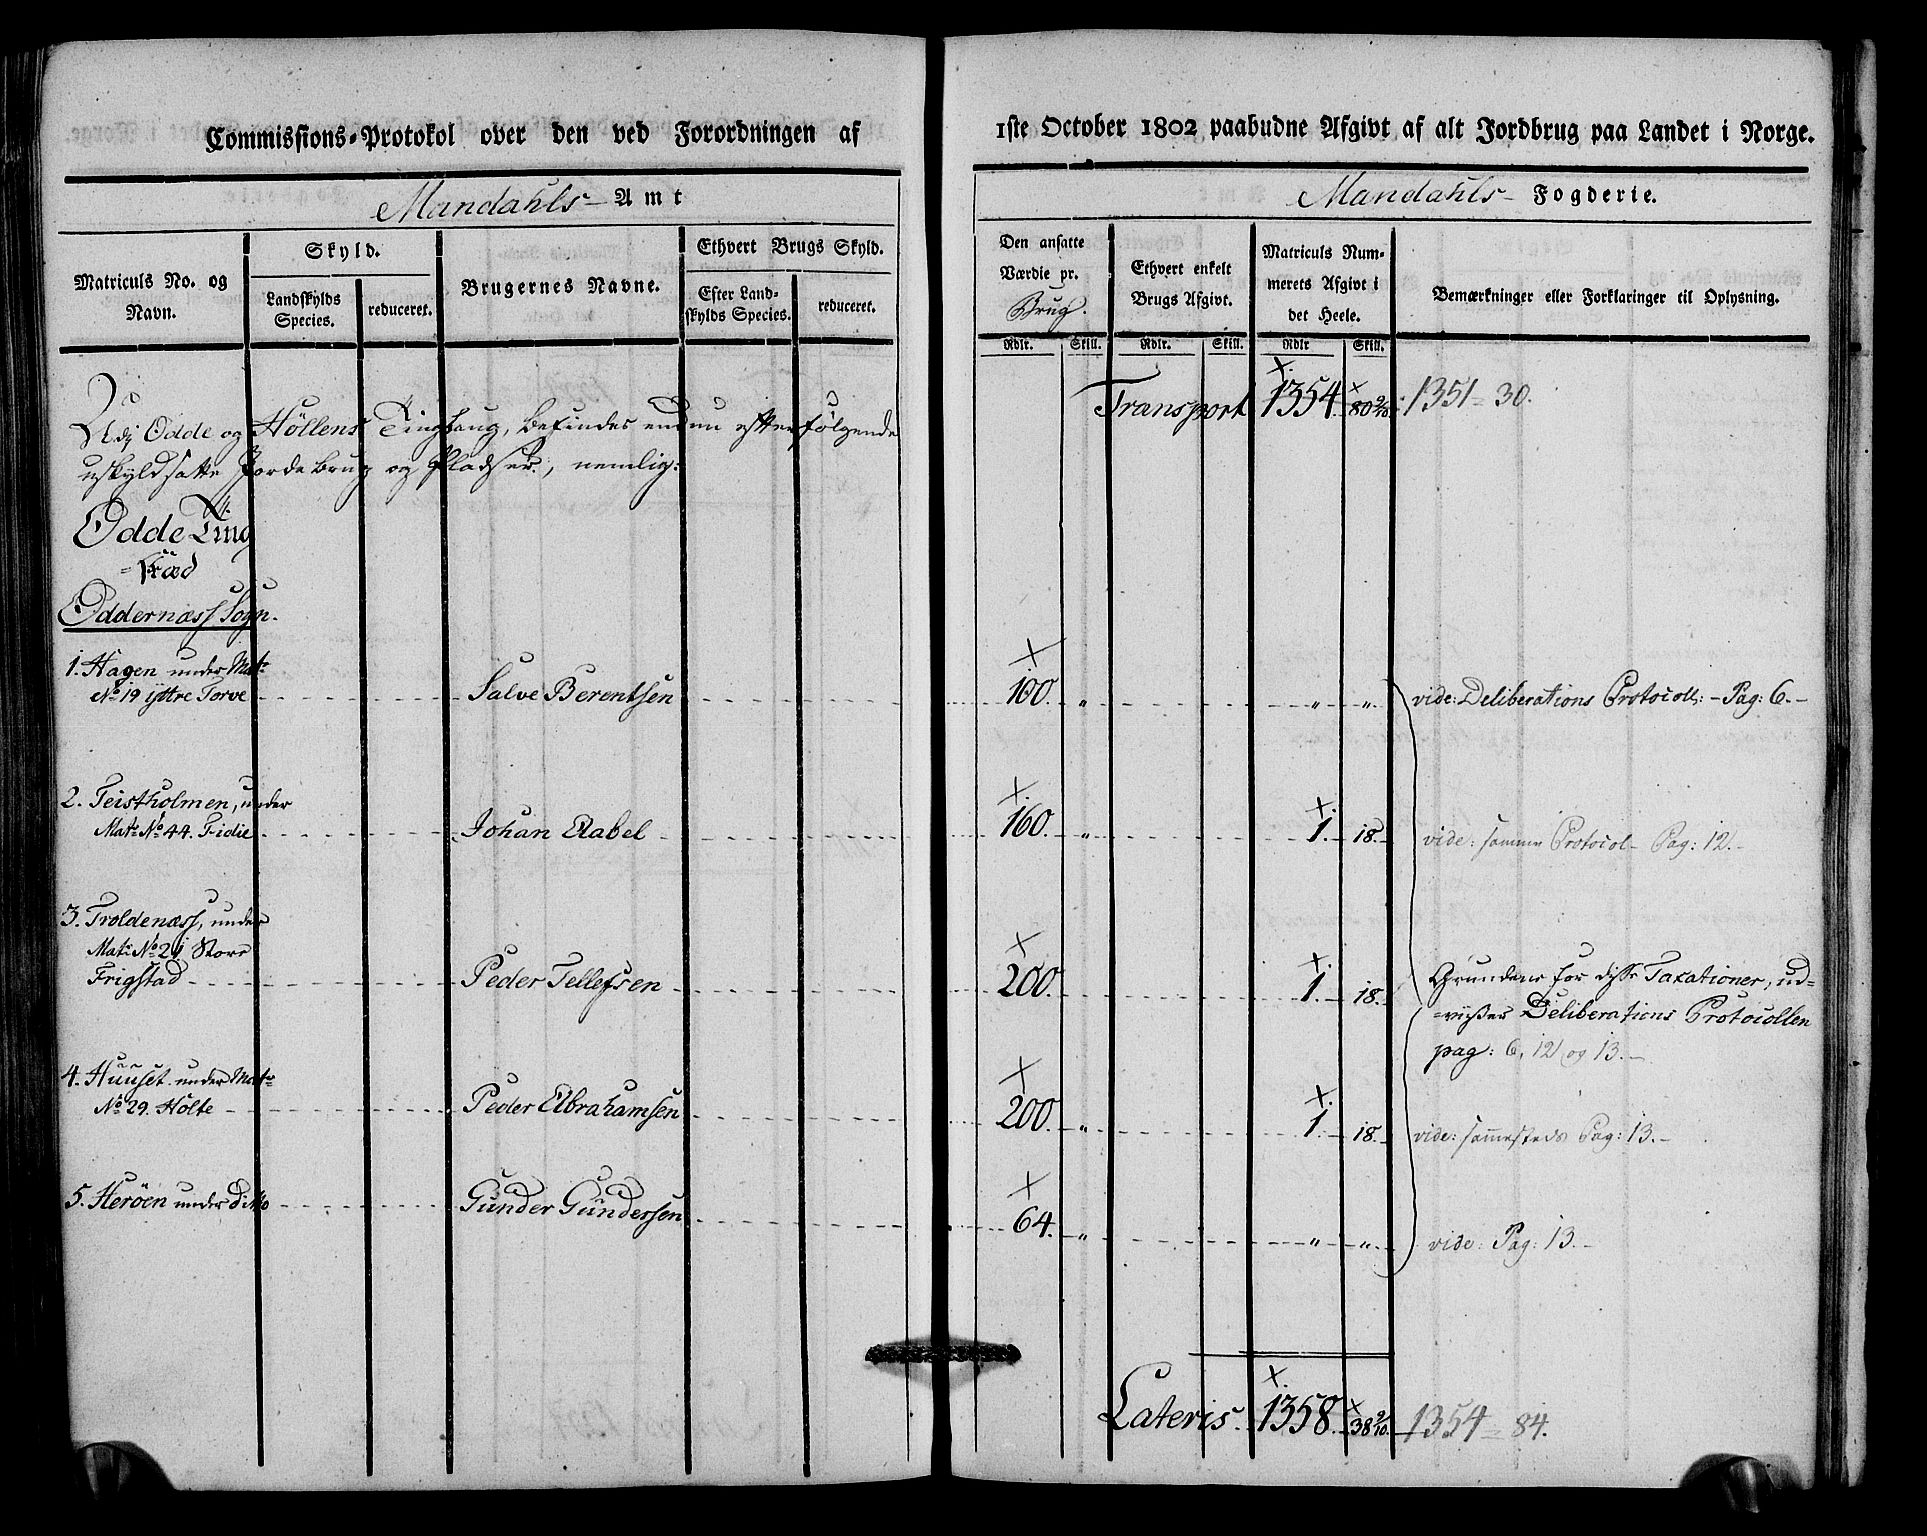 Commissions-Protokol over den ved Forordningen af
1ste October 1802 paabudne Afgivt af alt Jordbrug paa Landet i Norge.
Mandahls Amt
Mandahls Fogderie.
Matriculs No. og Navn.
Skyld.
Landskylds Species.
reduceret.
Brugernes Navne.
Ethvert Brugs Skyld.
Efter Landskylds Species.
reduceret.
Den ansatte Værdie pr. Brug.
Ethvert enkelt Brugs Afgivt.
Matriculs Nummerets Afgivt i det Heele.
Bemærkninger eller Forklaringer til Oplysning.
Rdlr. Skill. Rdlr. Skill. Rdlr Skill.
Transport 1354. 80 9/10. 1351 = 30.
Udj Odde og Höllens Tinglaug, befindes endnu efterfölgende
uskyldsatte Jordebrug og Pladser, nemlig:
Odde Ting
=sted
Oddernæss Sogn.
1. Hagen under Mat:
No 19 ÿttre Torve Salve Berentsen 100. " " " vide: Deliberations Protocoll: - Pag: 6.-
2. Teistholmen, under
Mat: No 44. Fidie Johan Aabel 160. " 1. 18. vide: samme Protocol- Pag: 12.-
3. Troldenæss, under
Mat: No 21 Store
Frigstad Peder Tellefsen 200. 1. 18. Grundene for disse Taxationer, ud=
=viser Deliberations Protocollen
pag: 6, 12 og 13.-
4. Huuset under Mat:
No 29. Holte Peder Abrahamsen 200. " 1. 18. vide: sammesteds Pag: 13.-
5. Heröen under ditto Gunder Gundersen 64. " " " vide: Pag: 13.-
Lateris. 1358. 38 9/10. 1354 = 84.